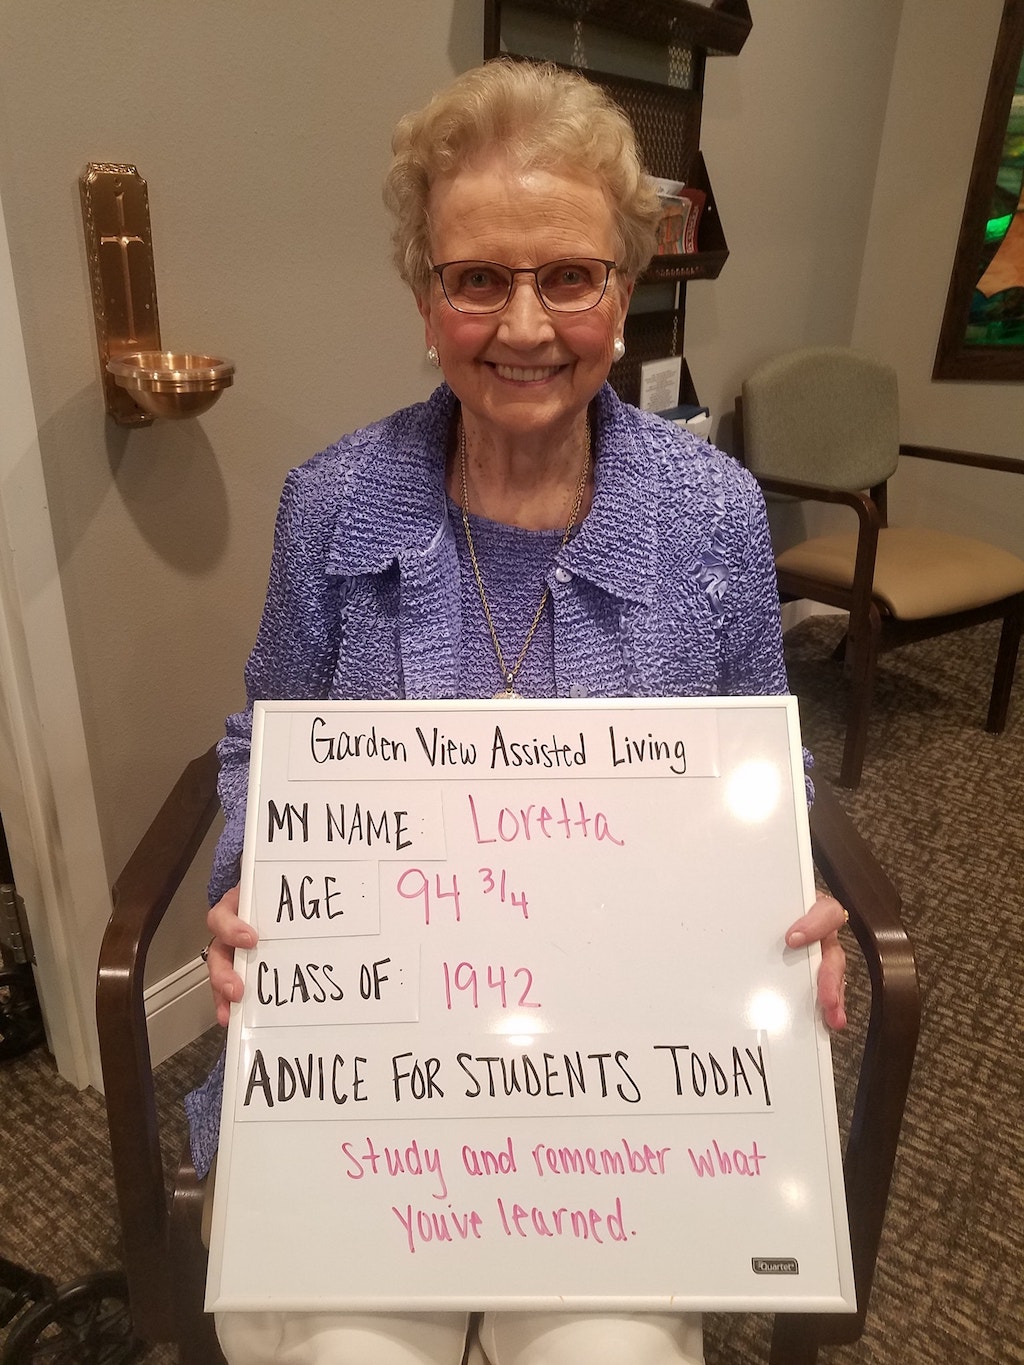 Garden View Assisted Living
MY NAME: Loretta
AGE: 94 3/4
CLASS OF: 1942
ADVICE FOR STUDENTS TODAY
study and remember what
you've learned.
Quartet